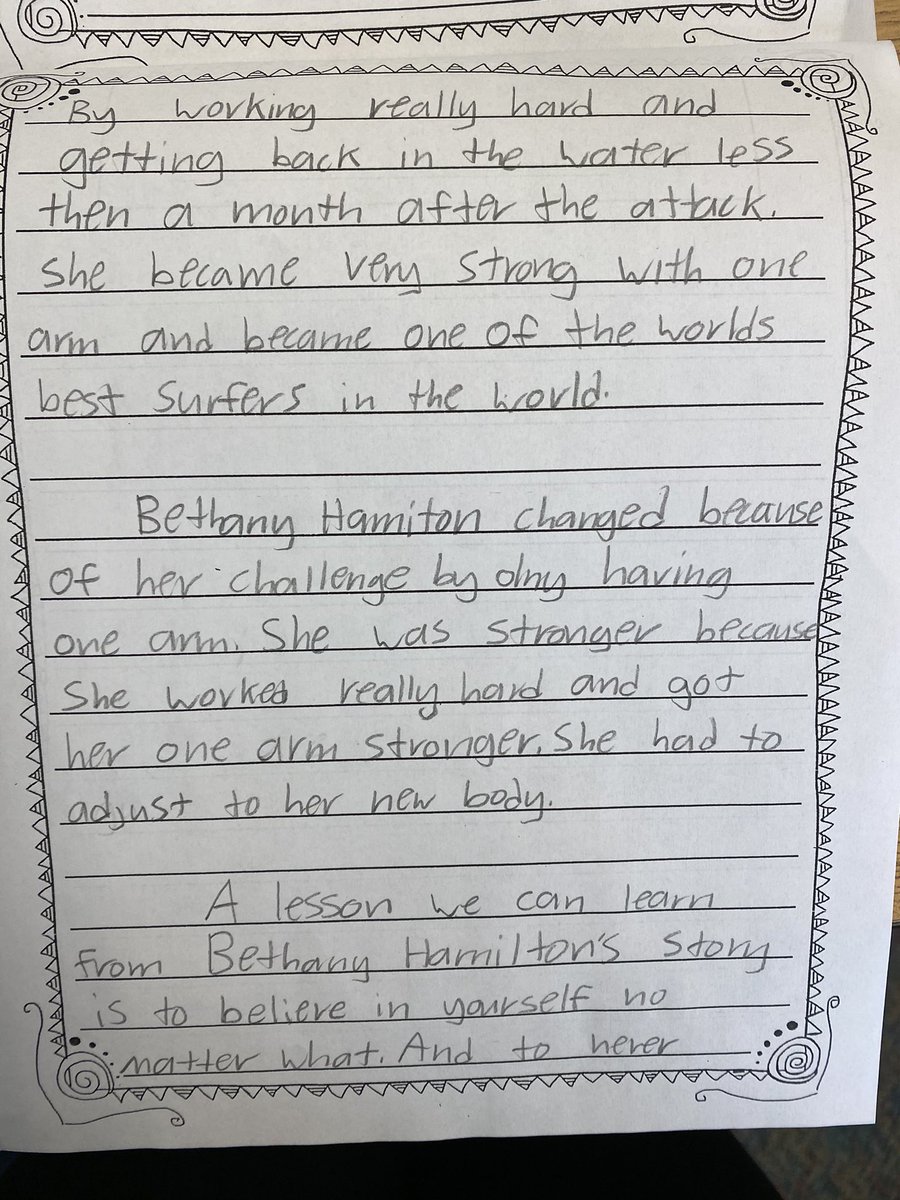 By working really hard and
getting back in the water less
then a month after the attack.
She became very strong with one
arm and became one of the worlds
best surfers in the world.
Bethany Hamiton changed because
of her challenge by olny having
one arm. She was stronger because
she worked really hard and got
her one arm stronger. She had to
adjust to her new body.
A lesson we can learn
from Bethany Hamilton's story
is to believe in yourself no
matter what. And to never